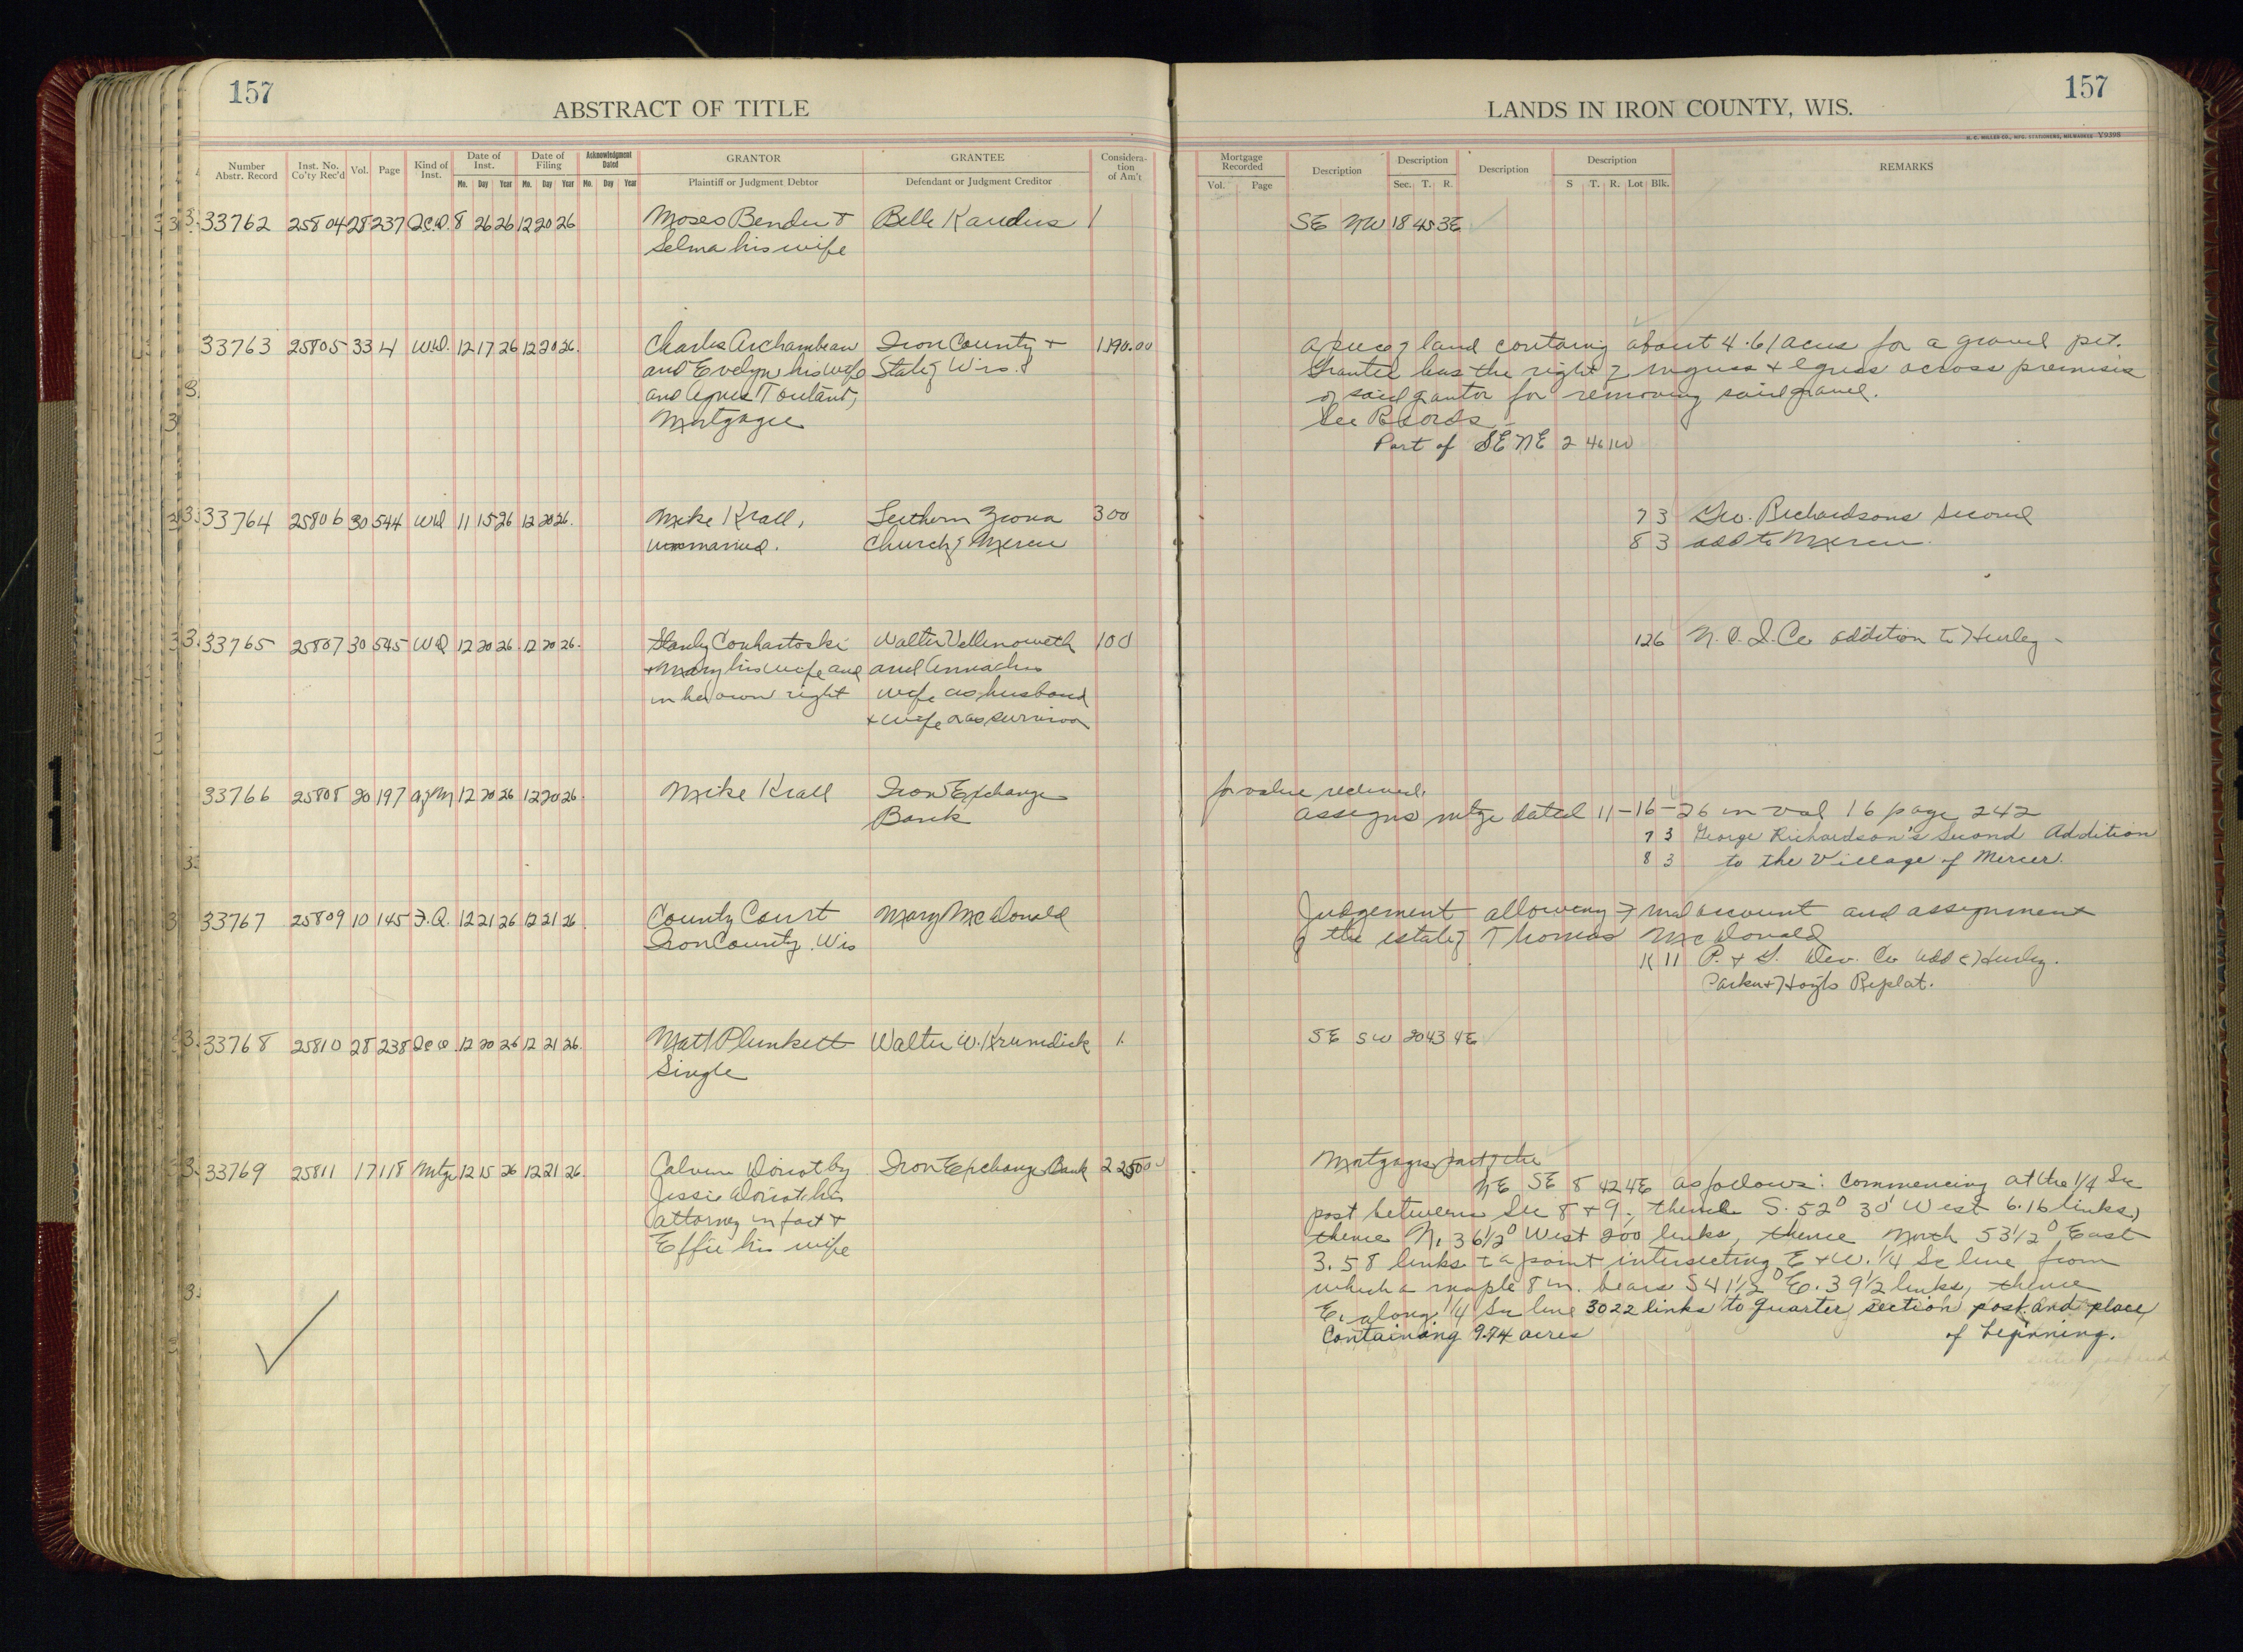 157
ABSTRACT OF TITLE
Number Abstr. Record | Inst. No. Co'ty Rec'd | Vol. | Page | Kind of Inst. | Date of Inst. Mo. Day Year | Date of Filing Mo. Day Year | Acknowledgment Dated Mo. Day Year | GRANTOR Plaintiff or Judgment Debtor | GRANTEE Defendant or Judgment Creditor | Consideration of Am't
33762 25804 28 237 Q.C.D. 8 26 26 12 20 26 Moses Bender & Belle Kandus 1
Selma his wife
33763 25805 33 14 W.D. 12 17 26 12 20 26. Charles Archambeau Iron County & 1390.00
and Evelyn his wife State of Wis.
and Agnes Toutant,
Mortgagee
33764 25806 30 544 WD 11 15 26 12 20 26. Mike Krall, Luthern Church of Mercer 300
unmarried.
33765 25807 30 545 WD 12 20 26 12 20 26. Stanly Conhartoski Walter Vellenoweth 100
& Mary his wife and and Anna his
in her own right wife as husband
& wife & as survivor
33766 25808 20 197 A of M 12 20 26 12 20 26. Mike Krall Iron Exchange
Bank
33767 25809 10 145 F.O. 12 21 26 12 21 26 County Court Mary McDonald
Iron County, Wis
33768 25810 28 238 Q.C.D. 12 20 26 12 21 26. Matt Plunkett Walter W. Krumdick 1.
Single
33769 25811 17 118 Mtge 12 15 26 12 21 26. Calvin Doriot by Iron Exchange Bank 2250.00
Jessie Doriot his
attorney in fact &
Effie his wife
157
LANDS IN IRON COUNTY, WIS.
H. C. MILLER CO., MFG. STATIONERS, MILWAUKEE Y9398
Mortgage Recorded Vol. Page | Description | Description Sec. T. R. | Description | Description S T. R. Lot Blk. | REMARKS
SE NW 18 45 3E
A piece of land containing about 4.61 acres for a gravel pit.
Grantee has the right of ingress & egress across premises
of said grantor for removing said gravel.
See Records
Part of SE NE 2 46 1W
7 3 Geo. Richardsons Second
8 3 add to Mercer.
126 N. I. Co addition to Hurley
for value received.
assigns mtge dated 11-16-26 in vol 16 page 242
7 3 George Richardson's Second Addition
8 3 to the Village of Mercer.
Judgement allowing Final account and assignment
of the estate of Thomas McDonald
K 11 P. & G. Dev. Co add to Hurley.
Parker & Hoyts Replat.
SE SW 20 43 4E
Mortgages part of the
NE SE 8 42 4E as follows: Commencing at the 1/4 Sec
post between Sec 8 & 9, thence S. 52° 30' West 6.16 links,
thence N. 36 1/2° West 200 links, thence North 53 1/2° East
3.58 links to a point intersecting E & W. 1/4 Sec line from
which a maple 8 in. bears S 41 1/2° E. 39 1/2 links, thence
E. along 1/4 Sec line 3022 links to quarter section post and place
Containing 9.74 acres of beginning.